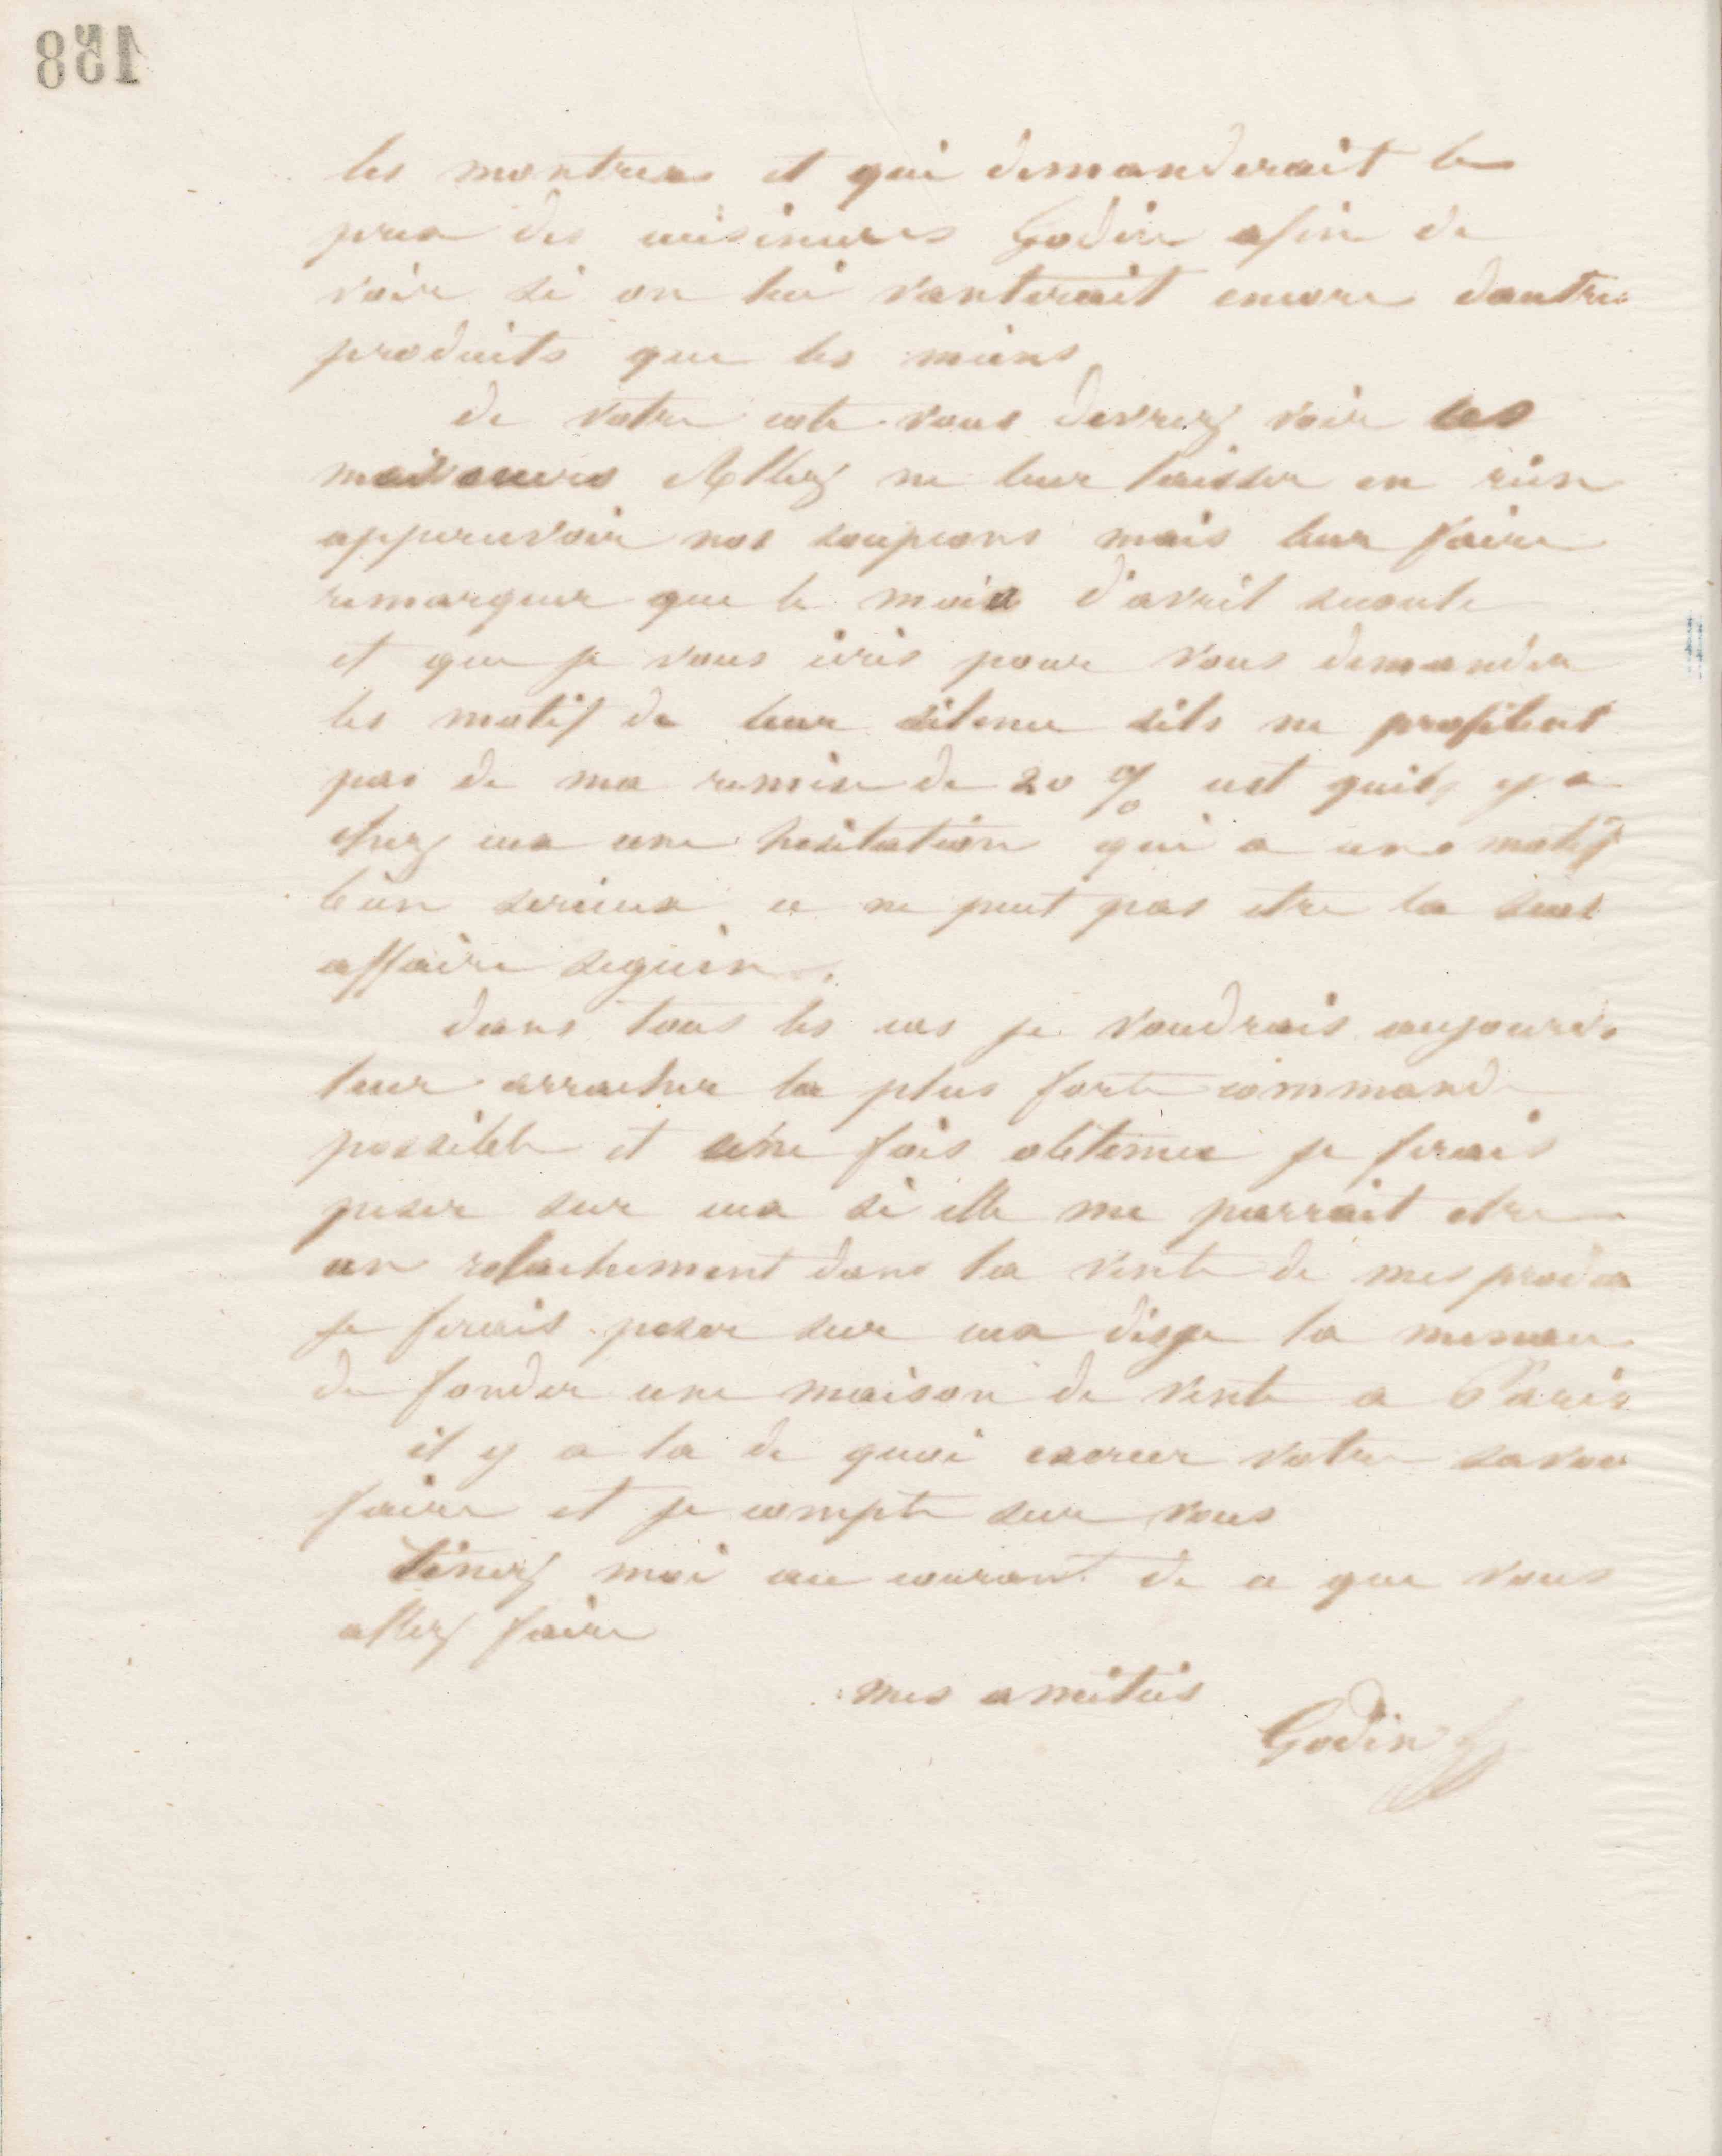 158
les montrera et qui demanderait le
prix des cuisinieres Godin afin de
voir si on lui vanterait encore dautres
produits que les miens
de votre cote vous devrez voir les
messieurs Allez ne leur laisser en rien
appercevoir nos soupcons mais leur faire
remarquer que le mois d'avril secoule
et que je vous ecris pour vous demander
les motif de leur silence sils ne profitent
pas de ma remise de 20 % cest quil y a
chez eux une hesitation qui a un motif
bien serieux ce ne peut pas etre la seul
affaire seguin.
dans tous les cas je voudrais aujourd
leur arracher la plus forte commande
possible et une fois obtenue je ferais
peser sur eux si elle me parrait etre
un relachement dans la vente de mes produi
je ferais peser sur eux disje la menace
de fonder une maison de vente a Paris
il y a la de quoi exercer votre savoir
faire et je compte sur vous
tenez moi au courant de ce que vous
allez faire
mes amities
Godin